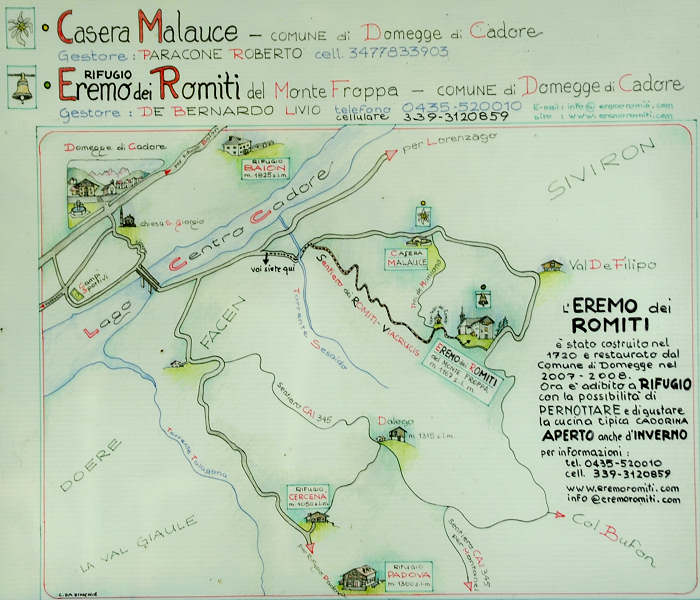 Casera Malauce – COMUNE di Domegge di Cadore
Gestore : PARACONE ROBERTO cell. 3477833903
RIFUGIO
Eremo dei Romiti del Monte Froppa – COMUNE di Domegge di Cadore
Gestore : DE BERNARDO LIVIO telefono 0435-520010
cellulare 339-3120859
E-mail : info@eremoromiti.com
sito : www.eremoromiti.com
Domegge di Cadore
RIFUGIO
BAION
m. 1825 s.l.m.
per Lorenzago
SIVIRON
chiesa S. Giorgio
Lago Centro Cadore
voi siete qui
Campi Sportivi
CASERA
MALAUCE
Val De Filipo
Sentiero dei ROMITI-VIACRUCIS
FACEN
Torrente Sesaldo
EREMO dei ROMITI
del MONTE FROPPA
m. 1167 s.l.m.
L'EREMO dei
ROMITI
è stato costruito nel
1720 e restaurato dal
Comune di Domegge nel
2007 - 2008.
Ora è adibito a RIFUGIO
con la possibilità di
PERNOTTARE e di gustare
la cucina tipica CADORINA
APERTO anche d'INVERNO
per informazioni :
tel. 0435-520010
cell. 339-3120859
www.eremoromiti.com
info @eremoromiti.com
Sentiero CAI 345
Dalego
m. 1315 s.l.m.
DOERE
Torrente Talagona
LA VAL GIAULE
RIFUGIO
CERCENA
m. 1050 s.l.m.
per Rifugio Padova
RIFUGIO
PADOVA
m. 1300 s.l.m.
Sentiero CAI 345
Col Bufon